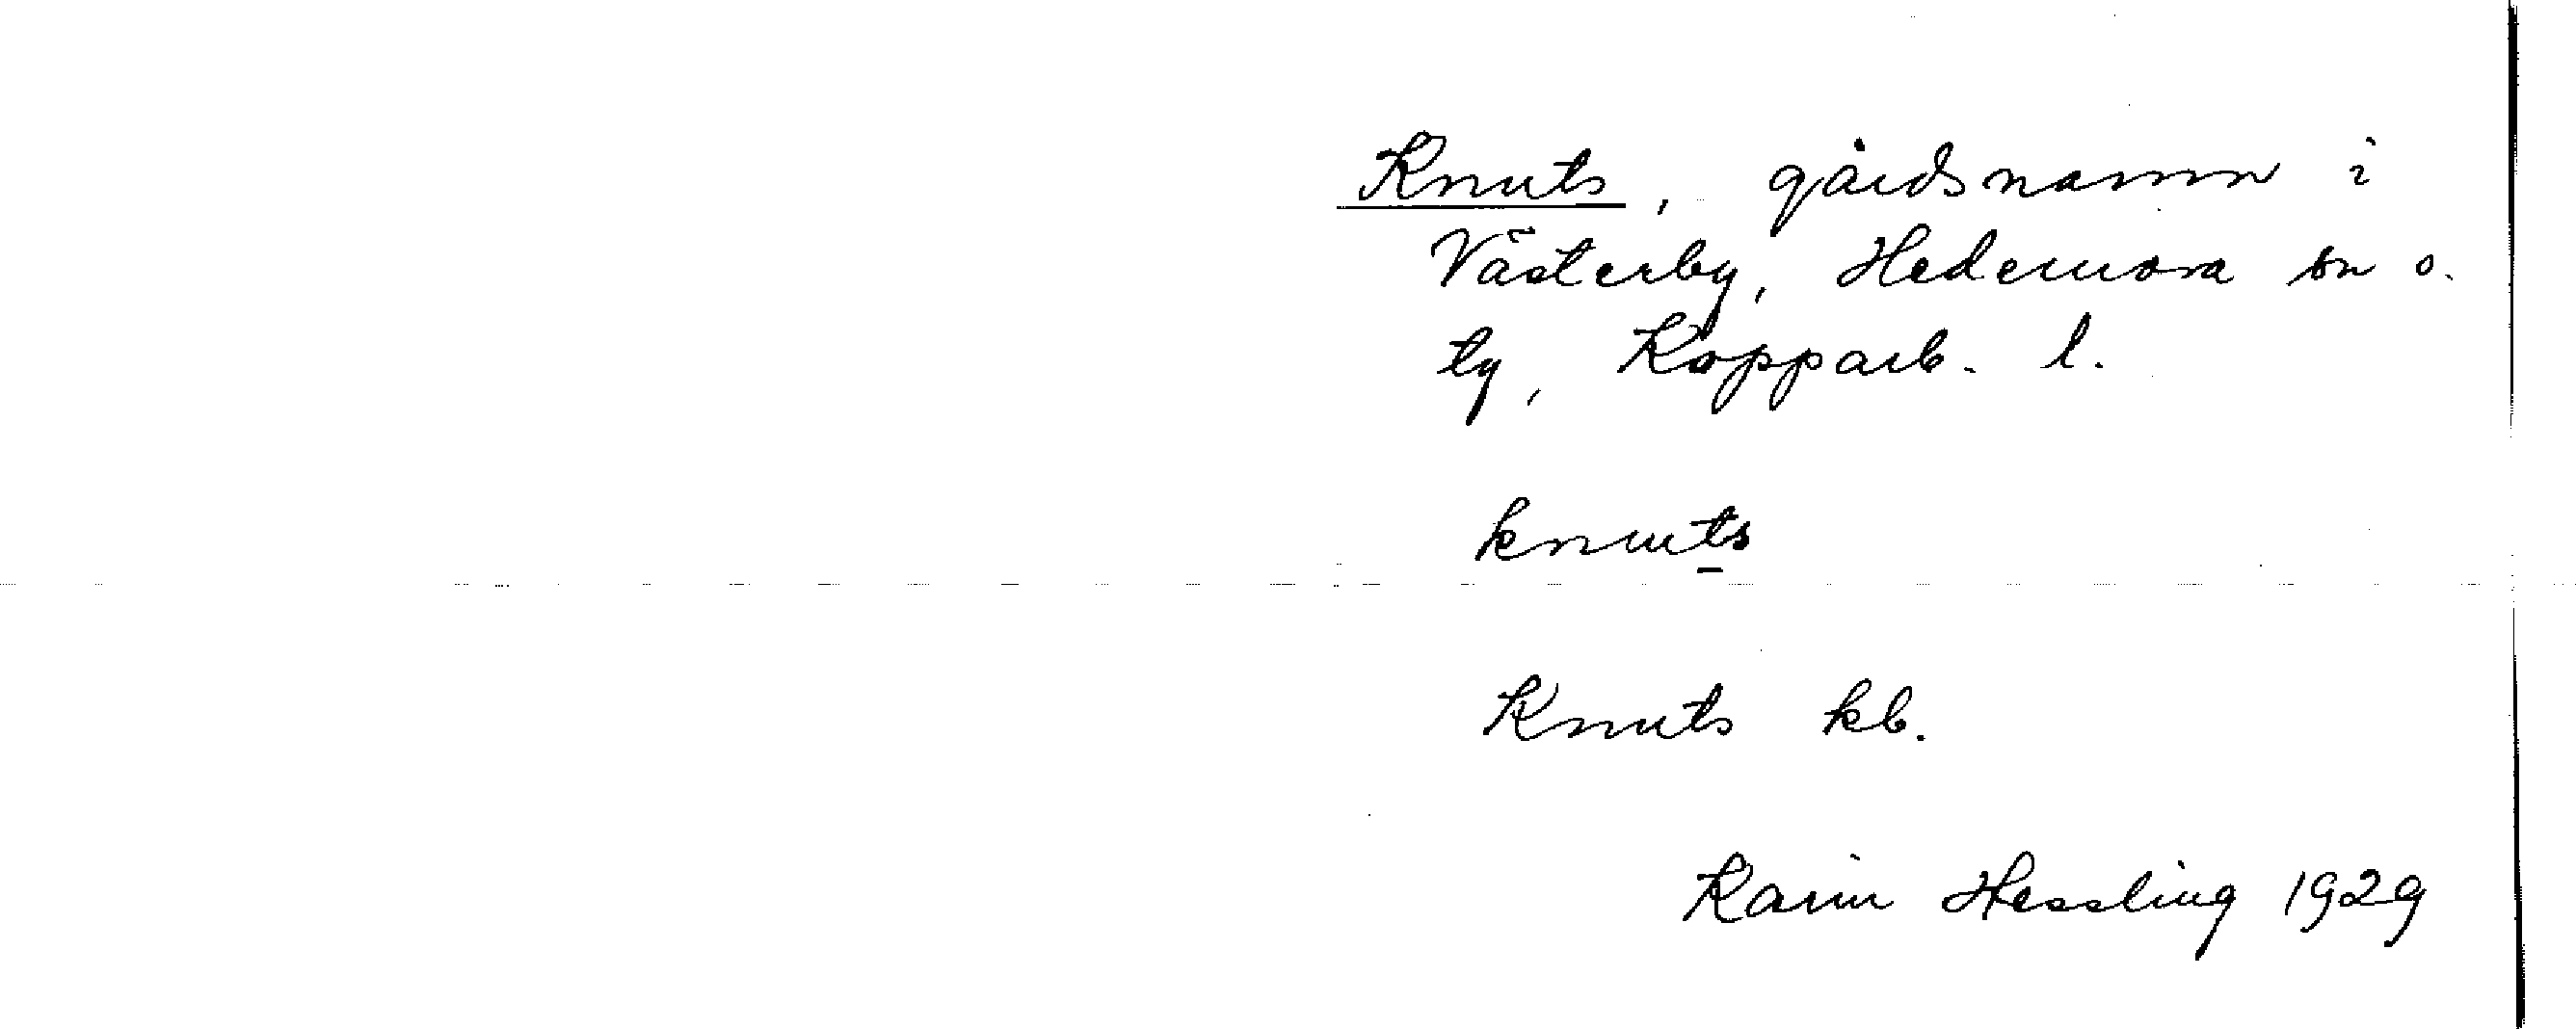 Knuts, gårdsnamn i
Västerby, Hedemora sn o.
tg, Kopparb. l.
knuts
Knuts kb.
Karin Hessling 1929